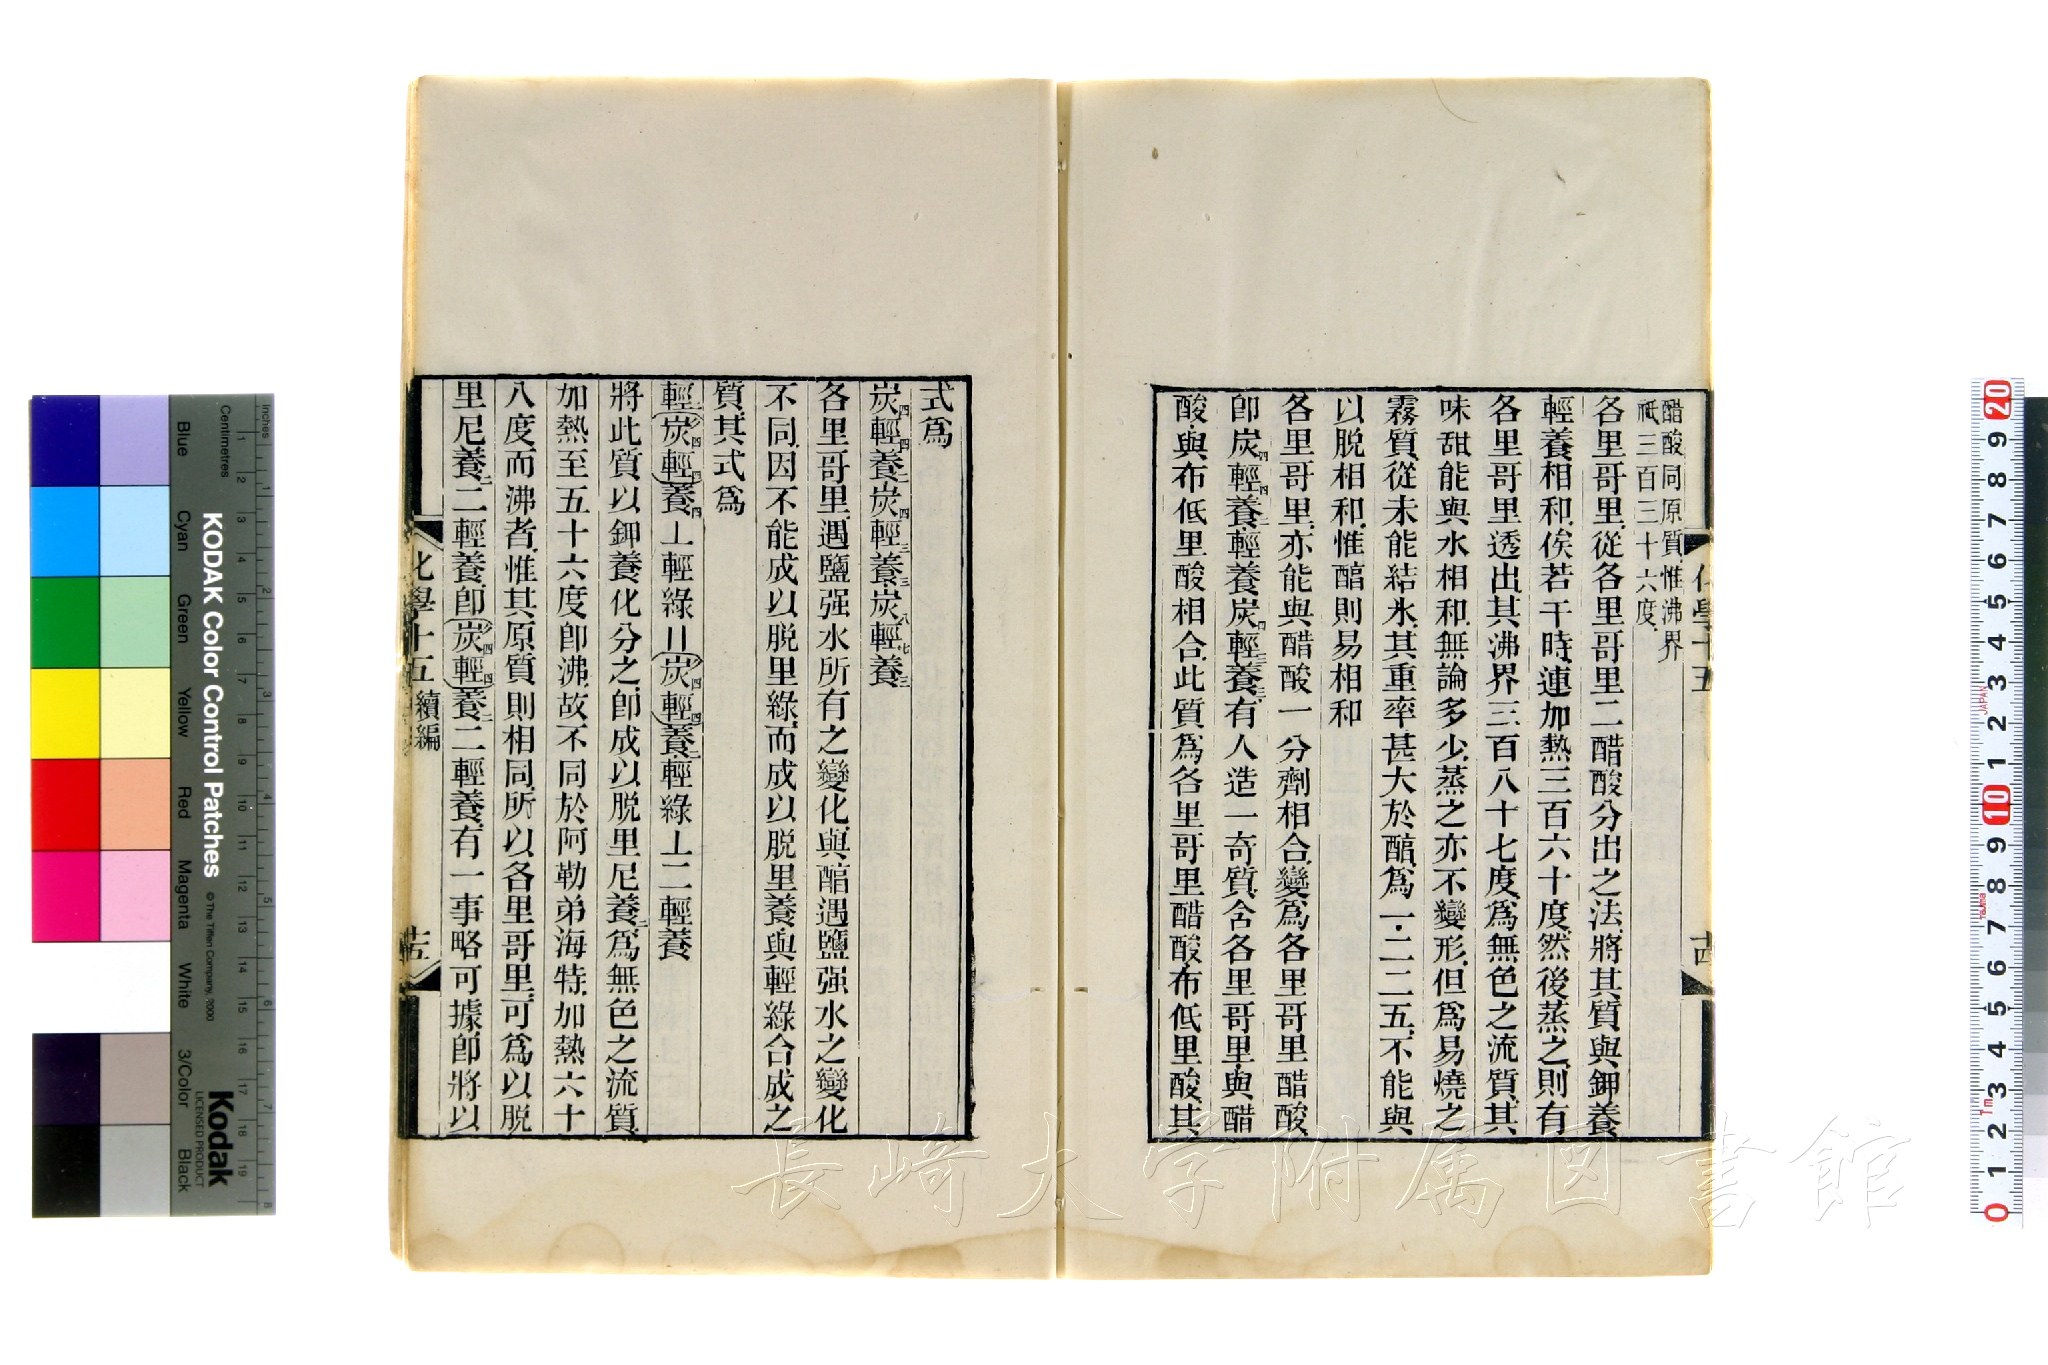 醋酸同原質惟沸界
祇三百三十六度
各里哥里從各里哥里二醋酸分出之法將其質與鉀養
輕養相和俟若干時連加熱三百六十度然後蒸之則有
各里哥里透出其沸界三百八十七度爲無色之流質其
味甜能與水相和無論多少蒸之亦不變形但爲易燒之
霧質從未能結氷其重率甚大於醕爲一·二二五不能與
以脱相和惟醕則易相和
各里哥里亦能與醋酸一分劑相合變爲各里哥里醋酸
卽炭四輕四養二輕養炭四輕三養三有人造一奇質含各里哥里與醋
酸與布低里酸相合此質爲各里哥里醋酸布低里酸其
化學十五
式爲
炭四輕四養二炭四輕三養三炭八輕七養三
各里哥里遇鹽强水所有之變化與醕遇鹽强水之變化
不同因不能成以脱里綠而成以脱里養與輕綠合成之
質其式爲
輕二(炭四輕四)養四⊥輕綠〢(炭四輕四)養二輕綠⊥二輕養
將此質以鉀養化分之卽成以脱里尼養二爲無色之流質
加熱至五十六度卽沸故不同於阿勒弟海特加熱六十
八度而沸者惟其原質則相同所以各里哥里可爲以脱
里尼養二二輕養卽(炭四輕四)養二二輕養有一事略可據卽將以
化學十五續編
Inches
Centimetres
KODAK Color Control Patches
© The Tiffen Company, 2000
Kodak
LICENSED PRODUCT
Blue
Cyan
Green
Yellow
Red
Magenta
White
3/Color
Black
長崎大学附属図書館